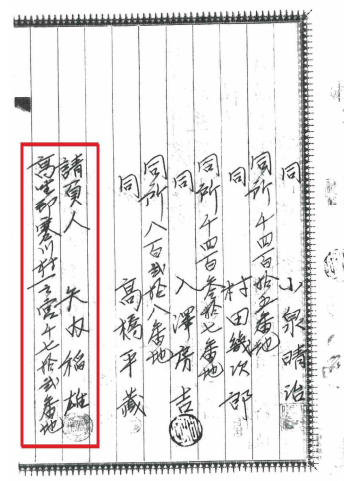 同 小泉晴治
同所 千四百拾五番地
同 村田幾次郎
同所 千四百参拾七番地
同 入澤房吉
同所 八百弐拾八番地
同 高橋平蔵
請負人 矢奴稲雄
高座郡寒川村一之宮千七拾弐番地